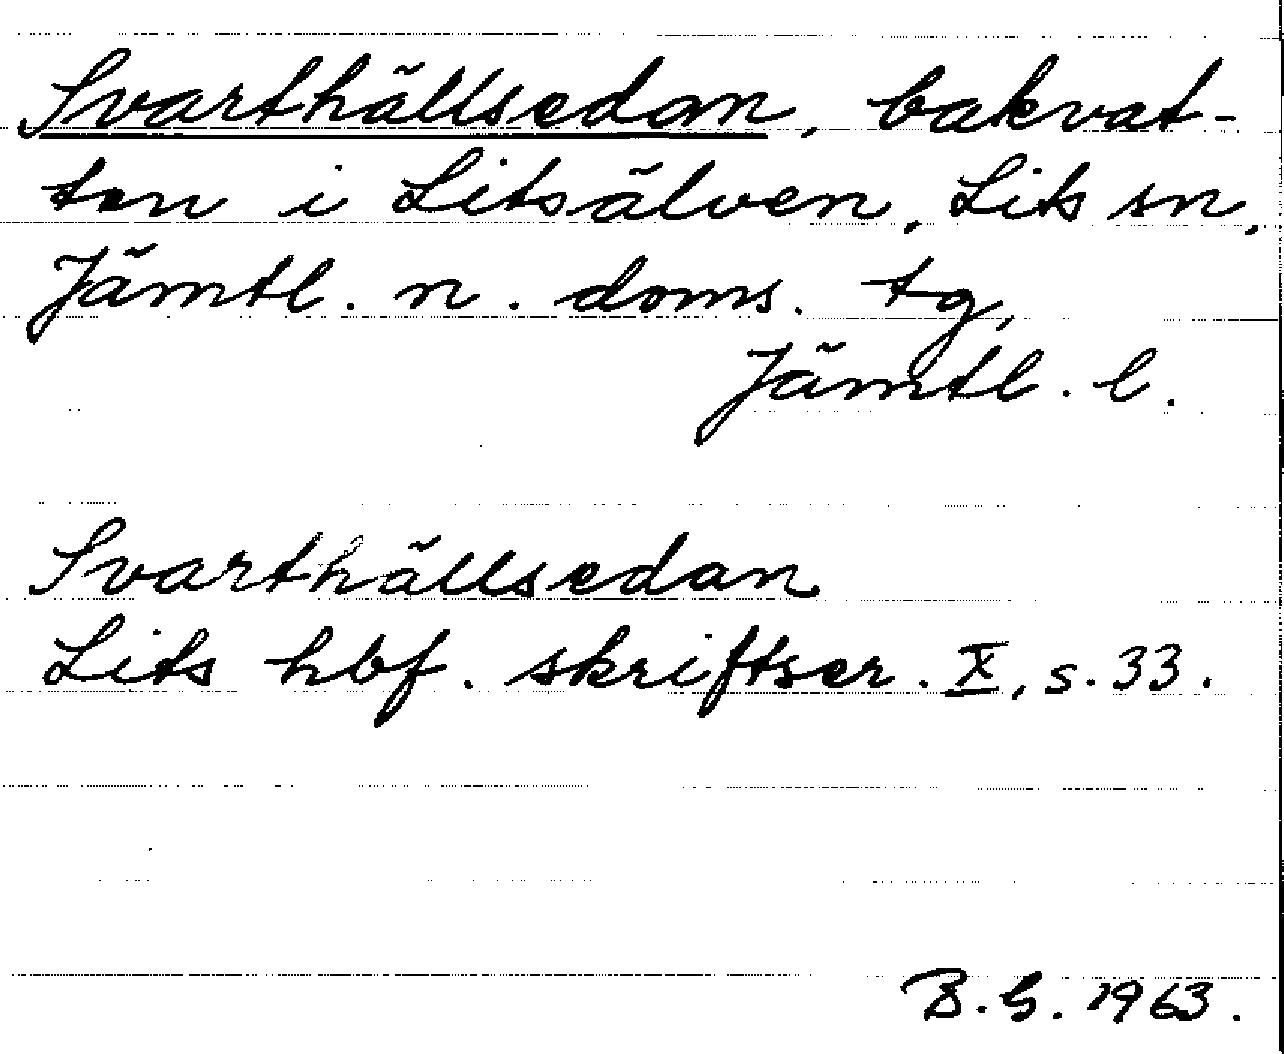 Svarthällsedan, bakvat-
ten i Litsälven, Lits sn,
Jämtl. n. doms. tg,
Jämtl. l.
Svarthällsedan
Lits hbf. skriftser. X, s. 33.
B.G. 1963.